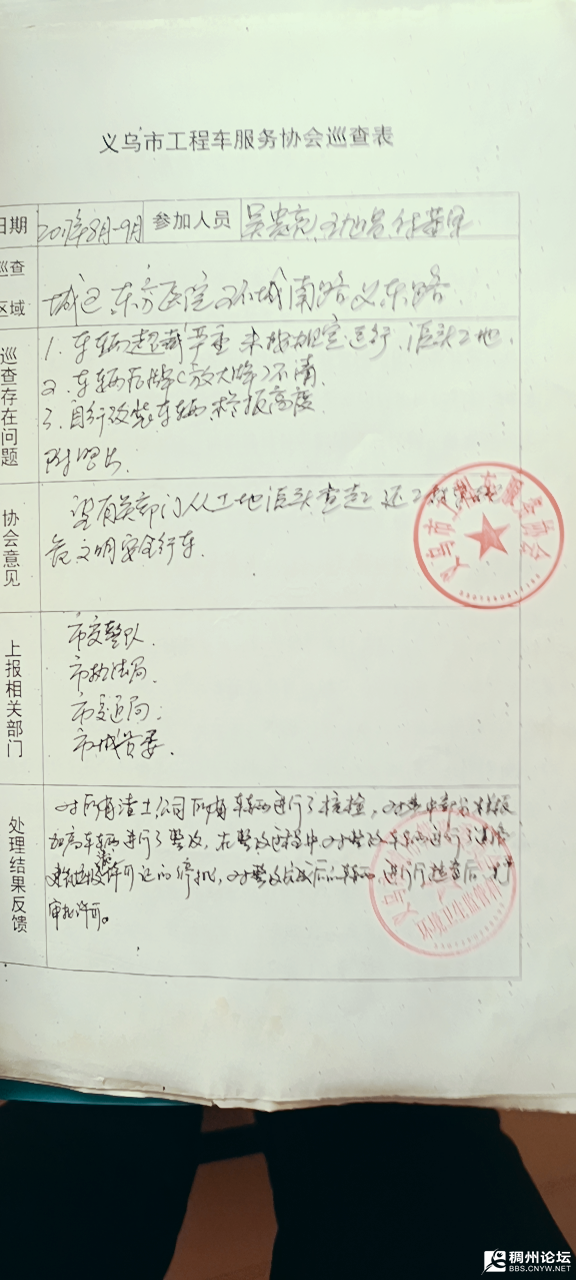 义乌市工程车服务协会巡查表
日期 2017年8月-9月 参加人员 吴贵亮
巡查区域 城区 东方医院 环城南路 义东路
巡查存在问题
1. 车辆超载严重 未按规定运行 源头工地.
2. 车辆后牌(放大牌)不清.
3. 自行改装车辆栏板高度
附照片
协会意见
望有关部门从工地源头查起
范文明安全行车.
上报相关部门
市交警队.
市执法局.
市交通局.
市城管委.
处理结果反馈
对所有渣土公司所有车辆进行了核检, 对其中部分栏板
加高车辆进行了整改, 在整改过程中对整改车辆进行了
许可证的停批, 对整改后的车辆, 进行检查后
审批许可。
义乌市工程车服务协会
义乌市
环境卫生监管科
稠州论坛
BBS.CNYW.NET